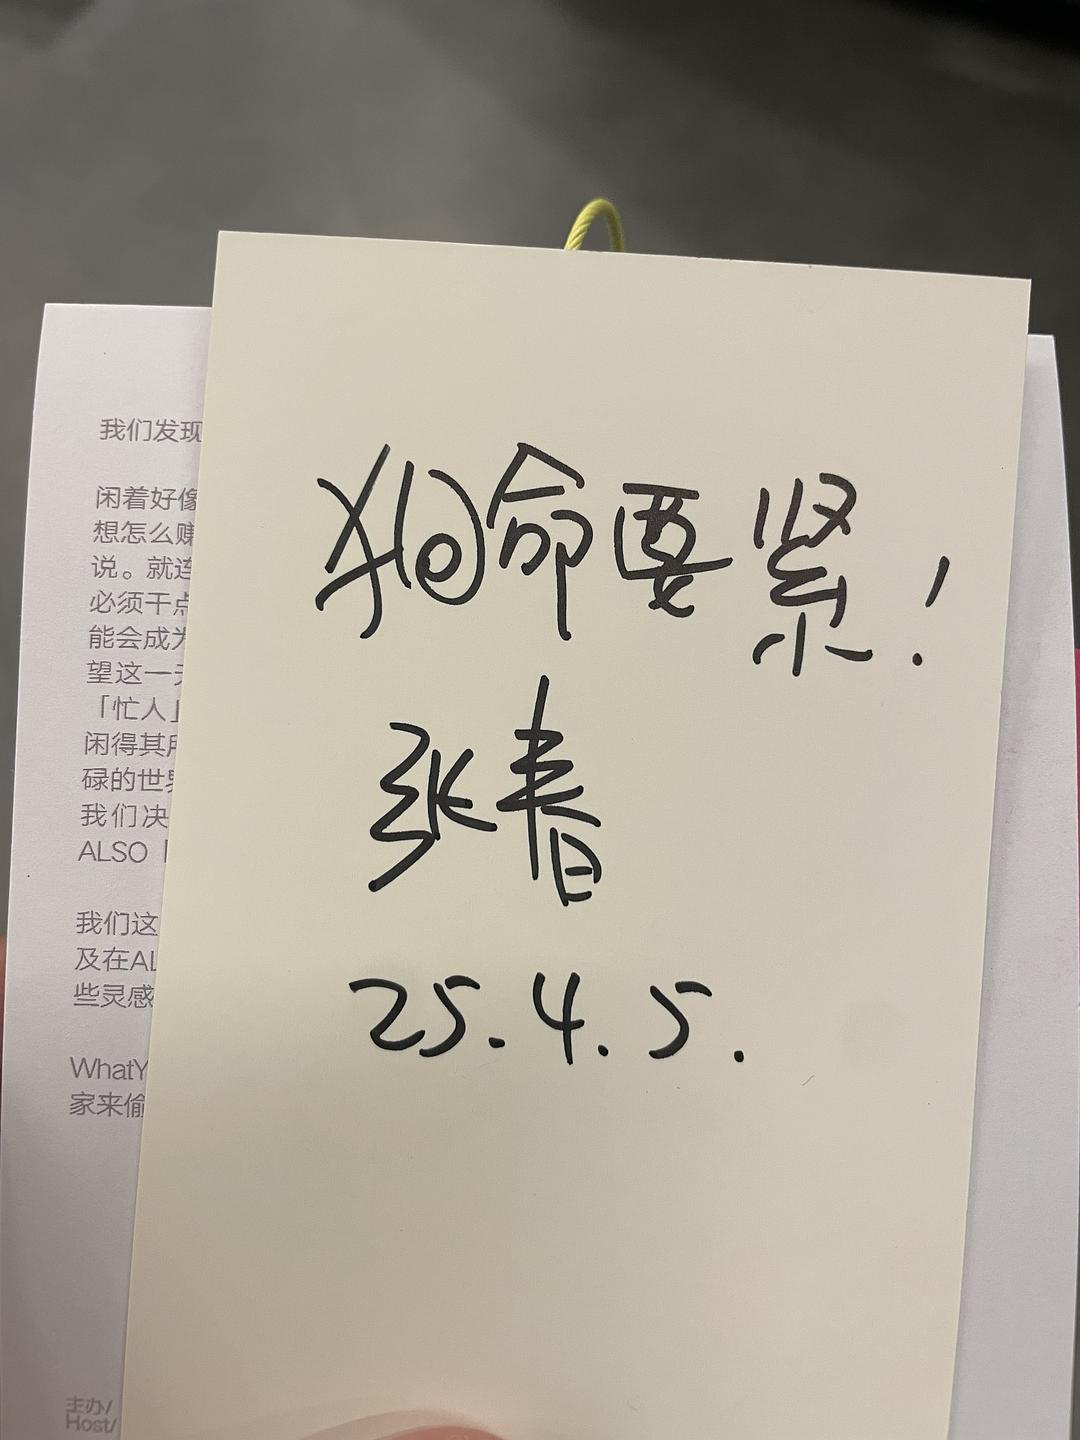 狗命要紧!
张春
25.4.5.
我们发现
闲着好像
想怎么赚
说。就连
必须干点
能会成为
望这一天
「忙人」
闲得其所
碌的世界
我们决
ALSO
我们这
及在AL
些灵感
WhatY
家来偷
主办/
Host/